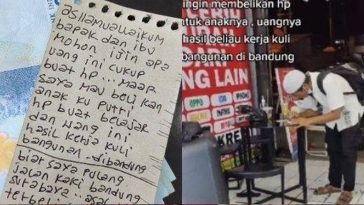 asllamualaikum
bapak dan ibu
mohon ijin apa
uang ini cukup
buat hp... maap
saya mau beli kan
anak ku putri
hp buat belajar
dan uang ini
hasil kerja kuli
bangunan.. dibandung
biar saya pulang
jalan kaki bandung
surabaya.. asal
terbeli
ingin membelikan hp
untuk anaknya, uangnya
hasil beliau kerja kuli
bangunan di bandung
ANG LAIN
OPPO